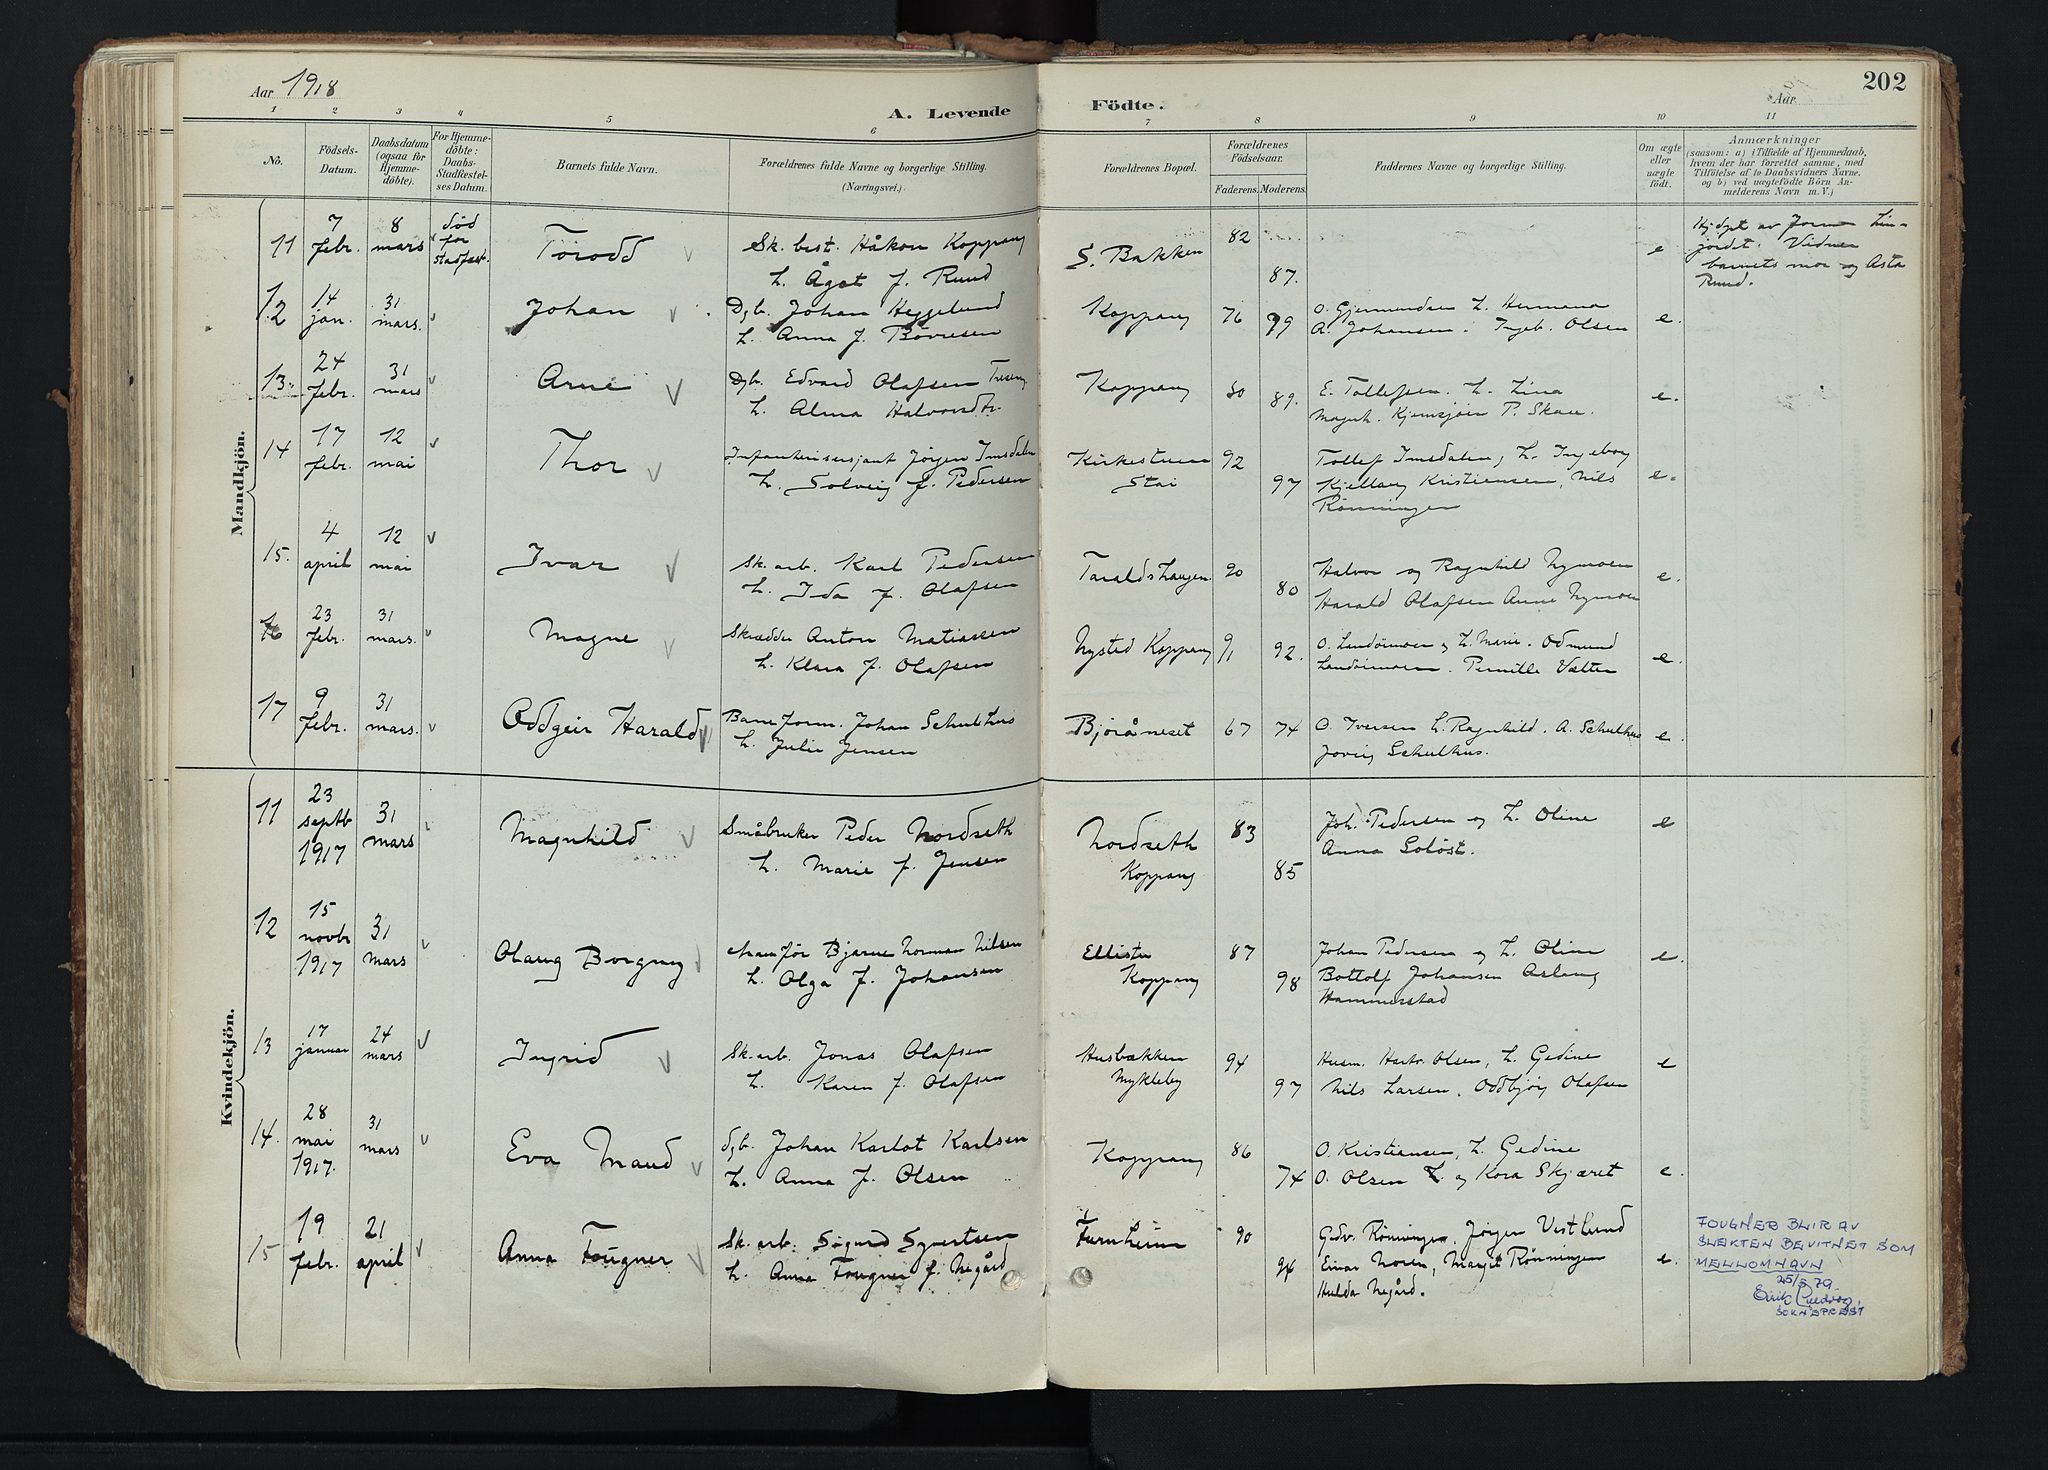 Aar 1918
A. Levende Födte.
Aar
202
1 2 3 4 5 6 7 8 9 10 11
No.
Födsels-Datum.
Daabsdatum (ogsaa for Hjemmedöbte).
For Hjemmedöbte: Daabs-Stadfestelses Datum.
Barnets fulde Navn.
Forældrenes fulde Navne og borgerlige Stilling. (Næringsvei).
Forældrenes Bopæl.
Forældrenes Födselsaar.
Faderens. Moderens.
Faddernes Navne og borgerlige Stilling.
Om ægte eller uægte födt.
Anmærkninger
(saasom: a) i Tilfælde af Hjemmedaab, hvem der har forrettet samme, med Tilföielse af to Daabsvidners Navne, og b) ved uægtefödte Börn Anmelderens Navn m. V.)
Mandkjön.
11 7 febr. 8 mars død før stadfæst. Torodd Sk. best. Håkon Koppang S. Bakken 82 e Hj.døpt av Jorm
h. Ågot f. Ruud 87. Vidner barnets mor og Asta Ruud.
12 14 jan. 31 mars. Johan Dgb. Johan Heggelund Koppang 76 79 O. Gjermundsen h. Hermana e.
h. Anna f. Børresen A. Johansen. Ingeb. Olsen
13. 24 febr. 31 mars Arne Dgb. Edvard Olafsen Koppang 80 89. E. Tollefsen. h. Lina e.
h. Alma Halvorsdtr. P. Skau.
14 17 febr. 12 mai Thor Infanterisersjant Jørgen Imsdalen Kirkestuen Stai 92 Tollef Imsdalen, h. Ingeborg
h. Solveig f. Pedersen 97 Kjellaug Kristiansen, Nils e.
Rønningen
15. 4 april 12 mai Ivar Sk. arb. Karl Pedersen Taraldshaugen 90 Halvor og Ragnhild Nymoen e.
h. Ida f. Olafsen 80 Harald Olafsen Anne Nymoen
16 23 febr. 31 mars. Magne Skrædder Anton Matiassen Nysted Koppang 91 92. O. Landåmoen og h. Marie. Odmund
h. Klara f. Olafsen Landåmoen. Pernille Vælten e.
17 9 febr. 31 mars. Oddgeir Harald Baneform. Johan Schulthus Bjøråneset 67 74 O. Iversen h. Ragnhild. A. Schulhus e.
h. Julie Jensen Schulhus.
Kvindekjön.
11 23 septb 1917 31 mars Magnhild Småbruker Peder Nordseth Nordseth Koppang 83 Joh. Pedersen og h. Oline e
h. Marie f. Jensen 85 Anna Soløst.
12 15 novbr 1917 31 mars Olaug Borgny Bjarne Norman Nilsen Koppang 87 Johan Pedersen og h. Oline e.
h. Olga f. Johansen 98 Bottolf Johansen Aslaug
Hammerstad
13 17 januar 24 mars Ingrid Sk. arb. Jonas Olafsen Husbækken Mykleby 94 Husm. Olsen, h. Gedine e
h. Karen f. Olafsen 97 Nils Larsen. Oddbjørg Olafsen
14. 28 mai 1917. 31 mars Eva Maud dgb. Johan Karlot Karlsen Koppang 86 O. Kristiansen, h. Gedine
h. Anna f. Olsen 74 O. Olsen h. og Kora Skjæret e.
15 19 febr. 21 april Anna Fougner Sk. arb. Sigurd Syvertsen Furuheim 90 Gudv. Rønningen. Jørgen Vestlund
h. Anna Fougner f. Negård 94 Einar Noren, Margit Rønningen e.
Hulda Negård.
FOUGNER BLIR AV
SLEKTEN BEVITNET SOM
MELLOMNAVN
25/5 79
SOKNEPREST